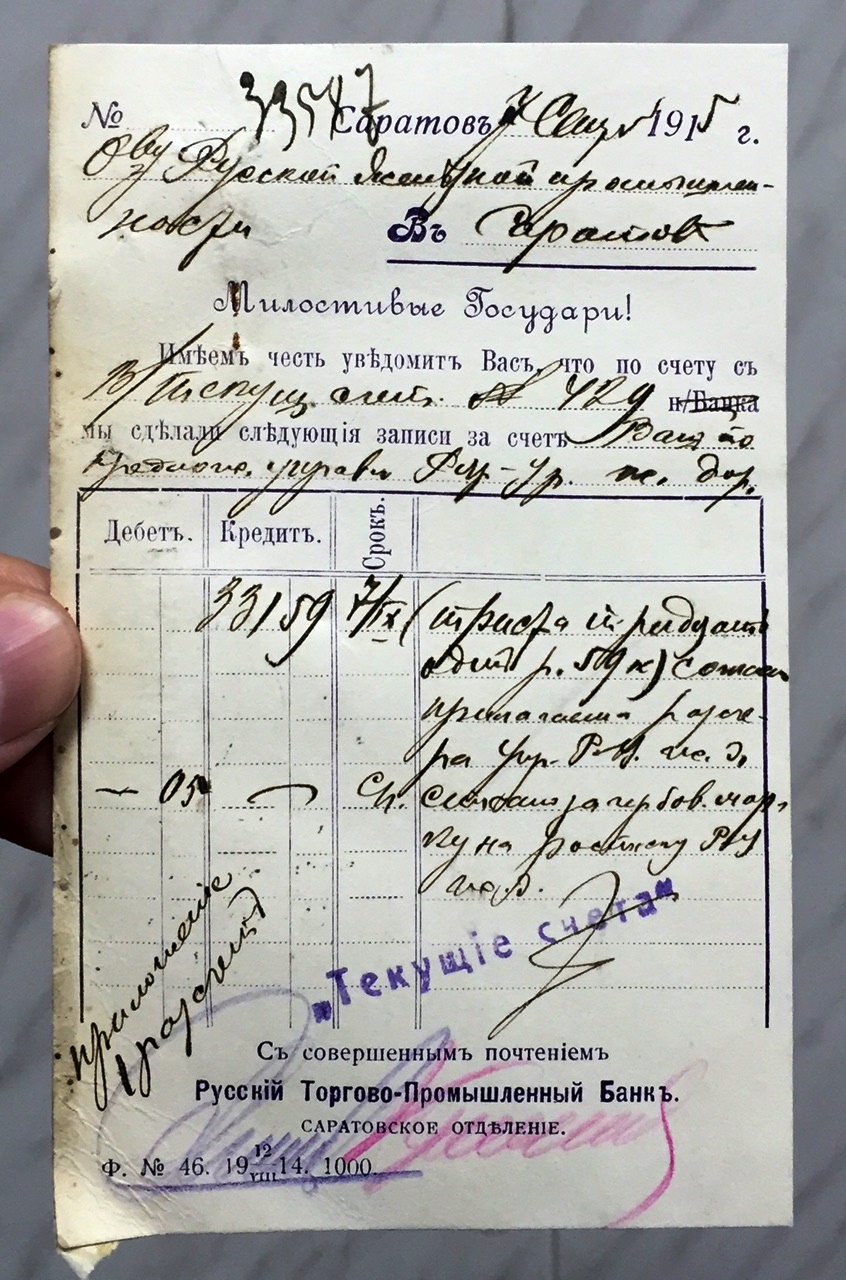 № 33547 Саратовъ, 7 Сент. 1915 г.
Русской промышлен-
ности Въ Саратов
Милостивые Государи!
Имѣемъ честь увѣдомить Васъ, что по счету съ
Текущ. счет. № 429 н/Банка
мы сдѣлали слѣдующія записи за счетъ Ваш по
Ряз-Ур. ж. дор.
Дебетъ. Кредитъ. Срокъ.
331 59 7/IX (триста тридцать
один р. 59 к)
прилагаем
ж. д.
— 05 — Сп. за гербов. мар-
ку на росписку РУ
ж. д.
приложеніе
1
„Текущіе счета"
Съ совершеннымъ почтеніемъ
Русскій Торгово-Промышленный Банкъ.
САРАТОВСКОЕ ОТДѢЛЕНІЕ.
Ф. № 46. 19 12/VIII 14. 1000.